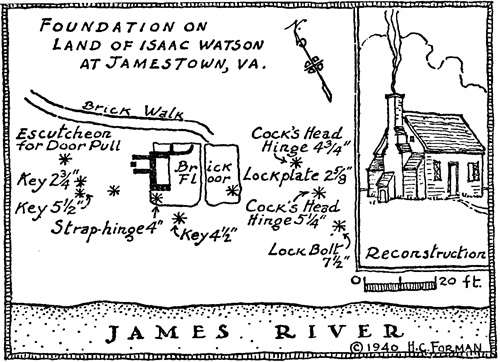 FOUNDATION ON
LAND OF ISAAC WATSON
AT JAMESTOWN, VA.
N.
Brick Walk
Escutcheon
for Door Pull
Key 2¾"
Key 5½"
Strap-hinge 4"
Key 4½"
Br ick
Fl oor
Cock's Head
Hinge 4¾"
Lockplate 2⅝"
Cock's Head
Hinge 5¼"
Lock Bolt
7½"
Reconstruction
0 20 ft.
JAMES RIVER
© 1940 H.C. FORMAN